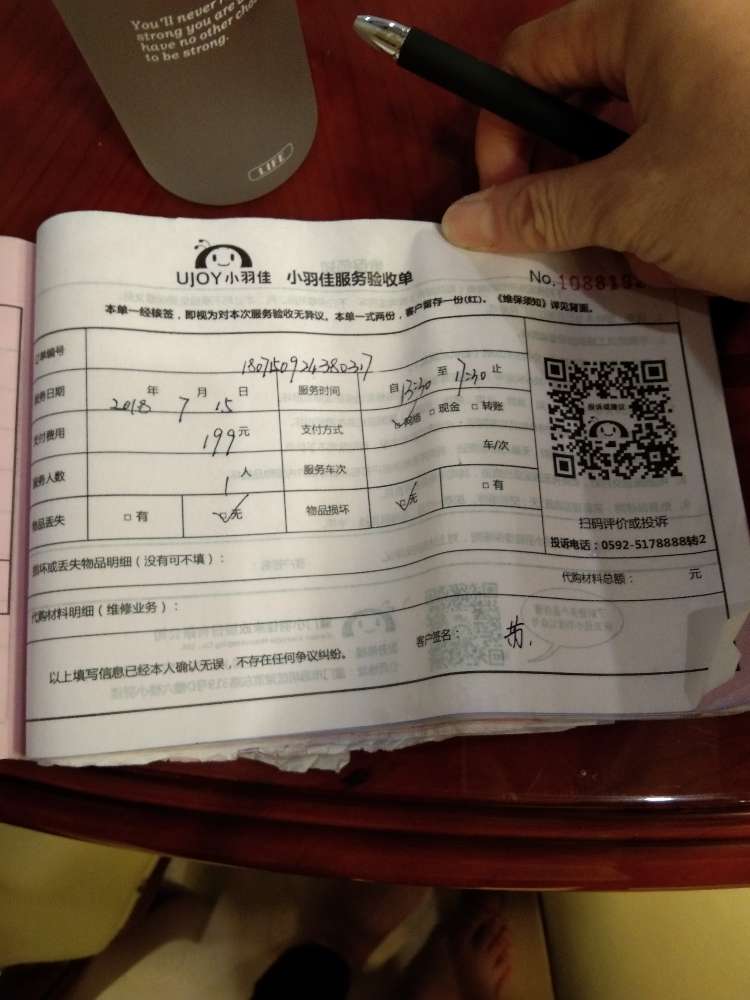 You'll never
strong you are
have no other cho
to be strong.
LIFE
UJOY小羽佳 小羽佳服务验收单
No.1088192
本单一经核签，即视为对本次服务验收无异议。本单一式两份，客户留存一份(红)、《维保须知》详见背面。
订单编号 1807150924380317
服务日期 2018年7月15日 服务时间 自13:30至17:30止
支付费用 199元 支付方式 网络 □现金 □转账
服务人数 1人 服务车次 车/次
物品丢失 □有 无 物品损坏 无 □有
投诉或建议
扫码评价或投诉
投诉电话：0592-5178888转2
损坏或丢失物品明细（没有可不填）：
代购材料明细（维修业务）： 代购材料总额： 元
以上填写信息已经本人确认无误，不存在任何争议纠纷。 客户签名：